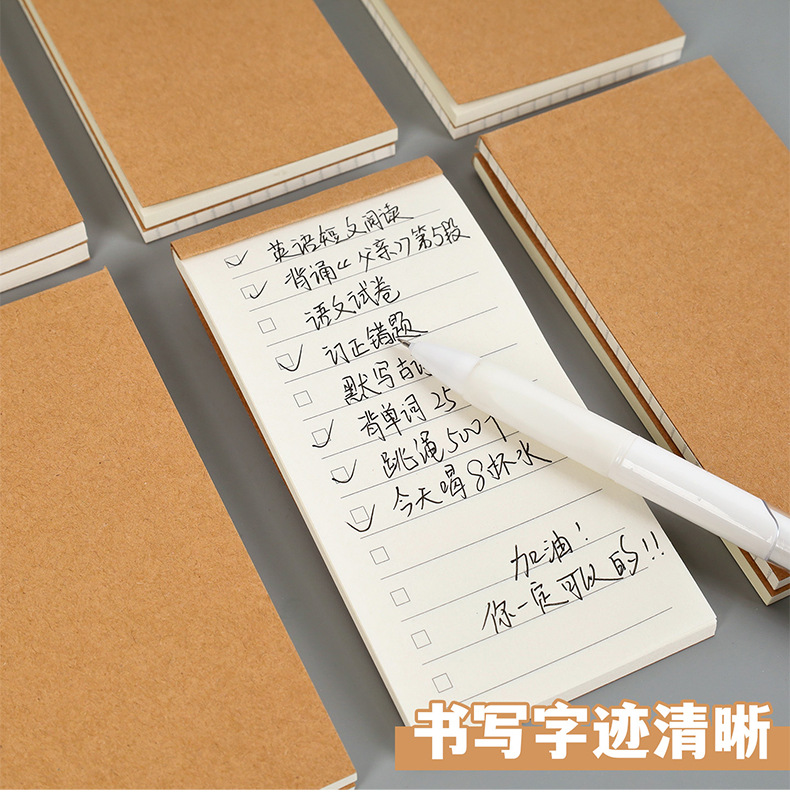 英语短文阅读
背诵《父亲》第5段
语文试卷
订正错题
默写古
背单词 25
跳绳500个
今天喝8杯水
加油！
你一定可以的！！
书写字迹清晰